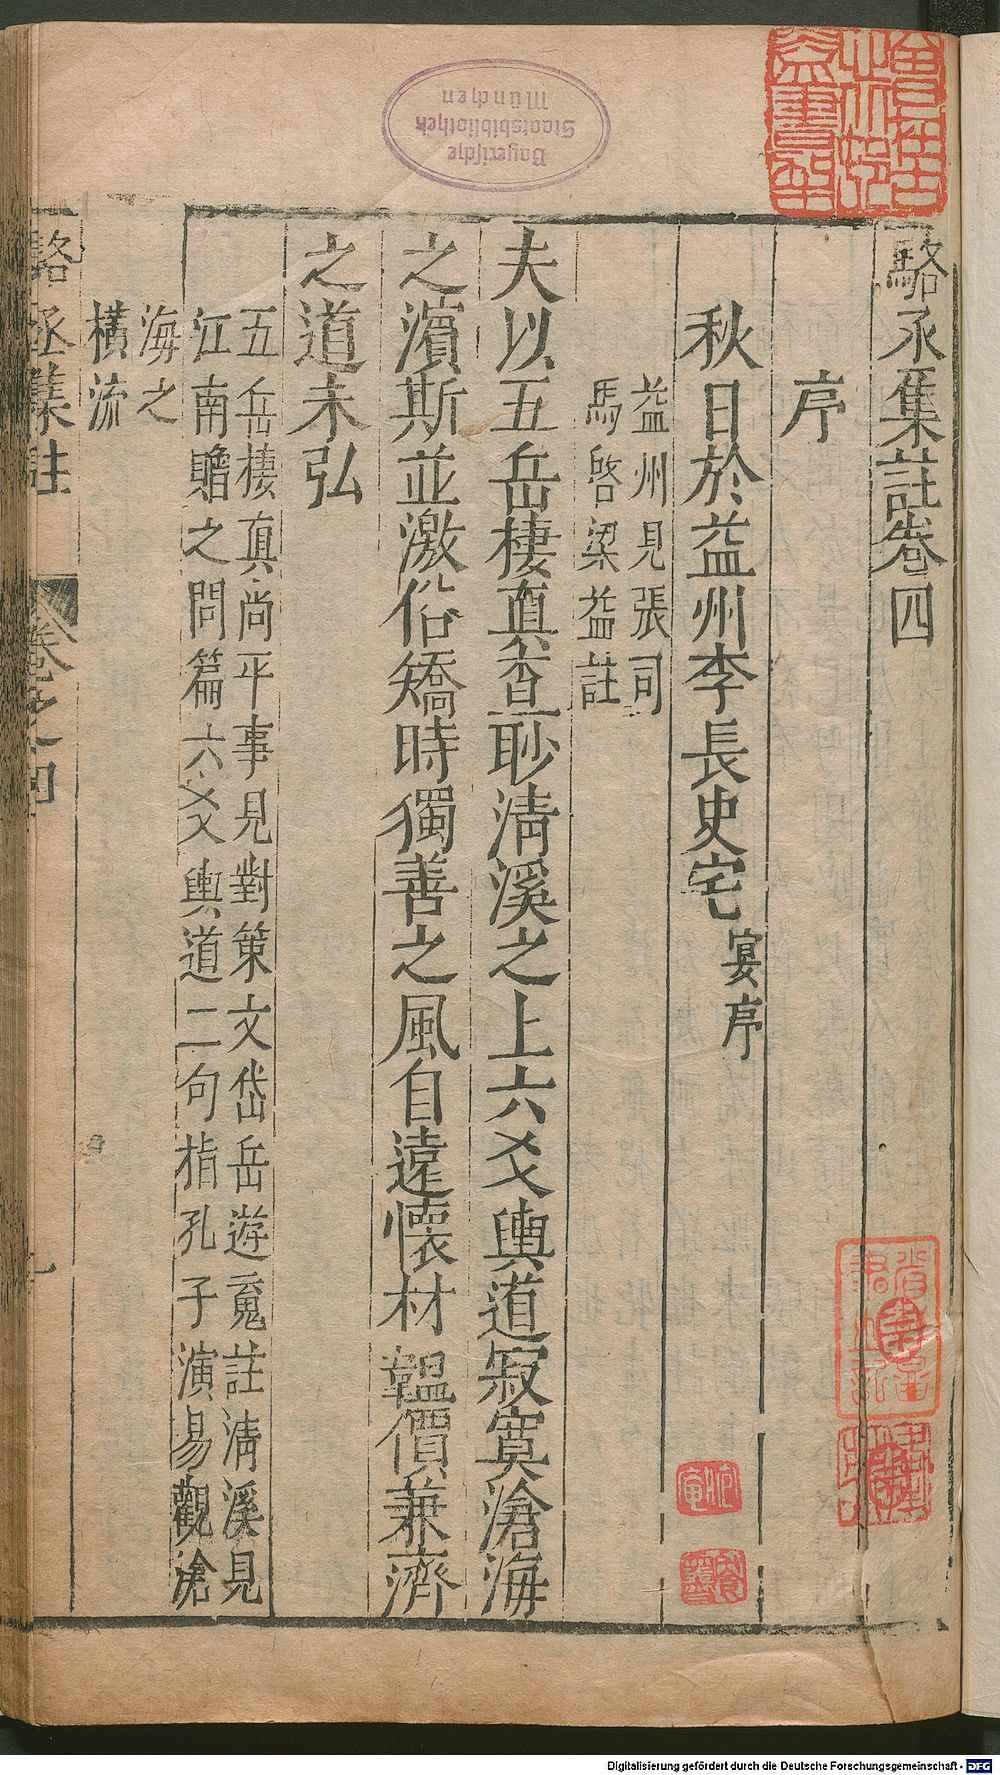 駱丞集註卷四
序
秋日於益州李長史宅宴序
益州見張司
馬啓梁益註
夫以五岳棲真杳眇清溪之上六爻輿道寂寞滄海
之濱斯並激俗矯時獨善之風自遠懷材韞價兼濟
之道未弘
五岳棲真尚平事見對策文岱岳遊䰟註清溪見
江南贈之問篇六爻輿道二句指孔子演易觀滄
海之
橫流
駱丞集註
卷之四
一
Bayerische
Staatsbibliothek
München
Digitalisierung gefördert durch die Deutsche Forschungsgemeinschaft - DFG